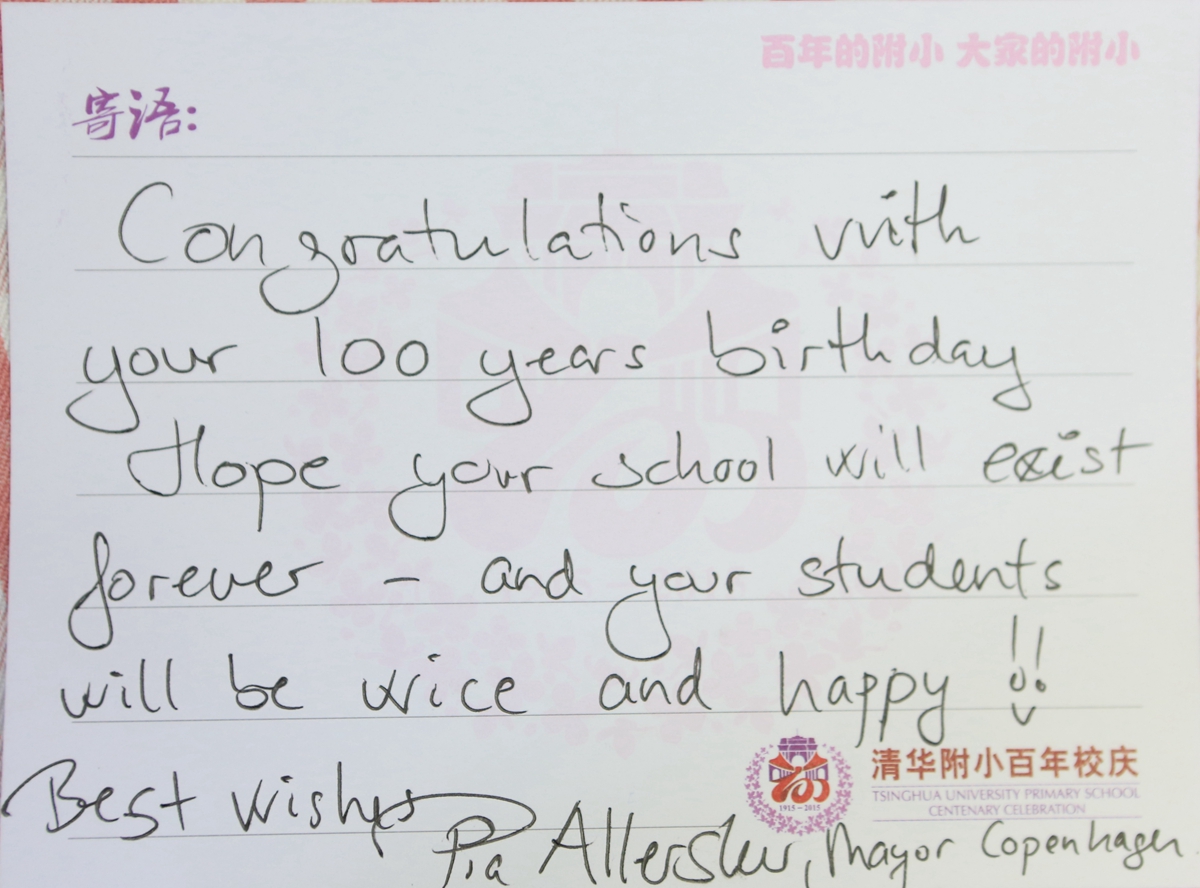 百年的附小 大家的附小
寄语:
Congratulations with
your 100 years birthday
Hope your school will exist
forever - and your students
will be wice and happy !!
清华附小百年校庆
TSINGHUA UNIVERSITY PRIMARY SCHOOL
CENTENARY CELEBRATION
1915-2015
Best wishes
Pia Allerslev, Mayor Copenhagen